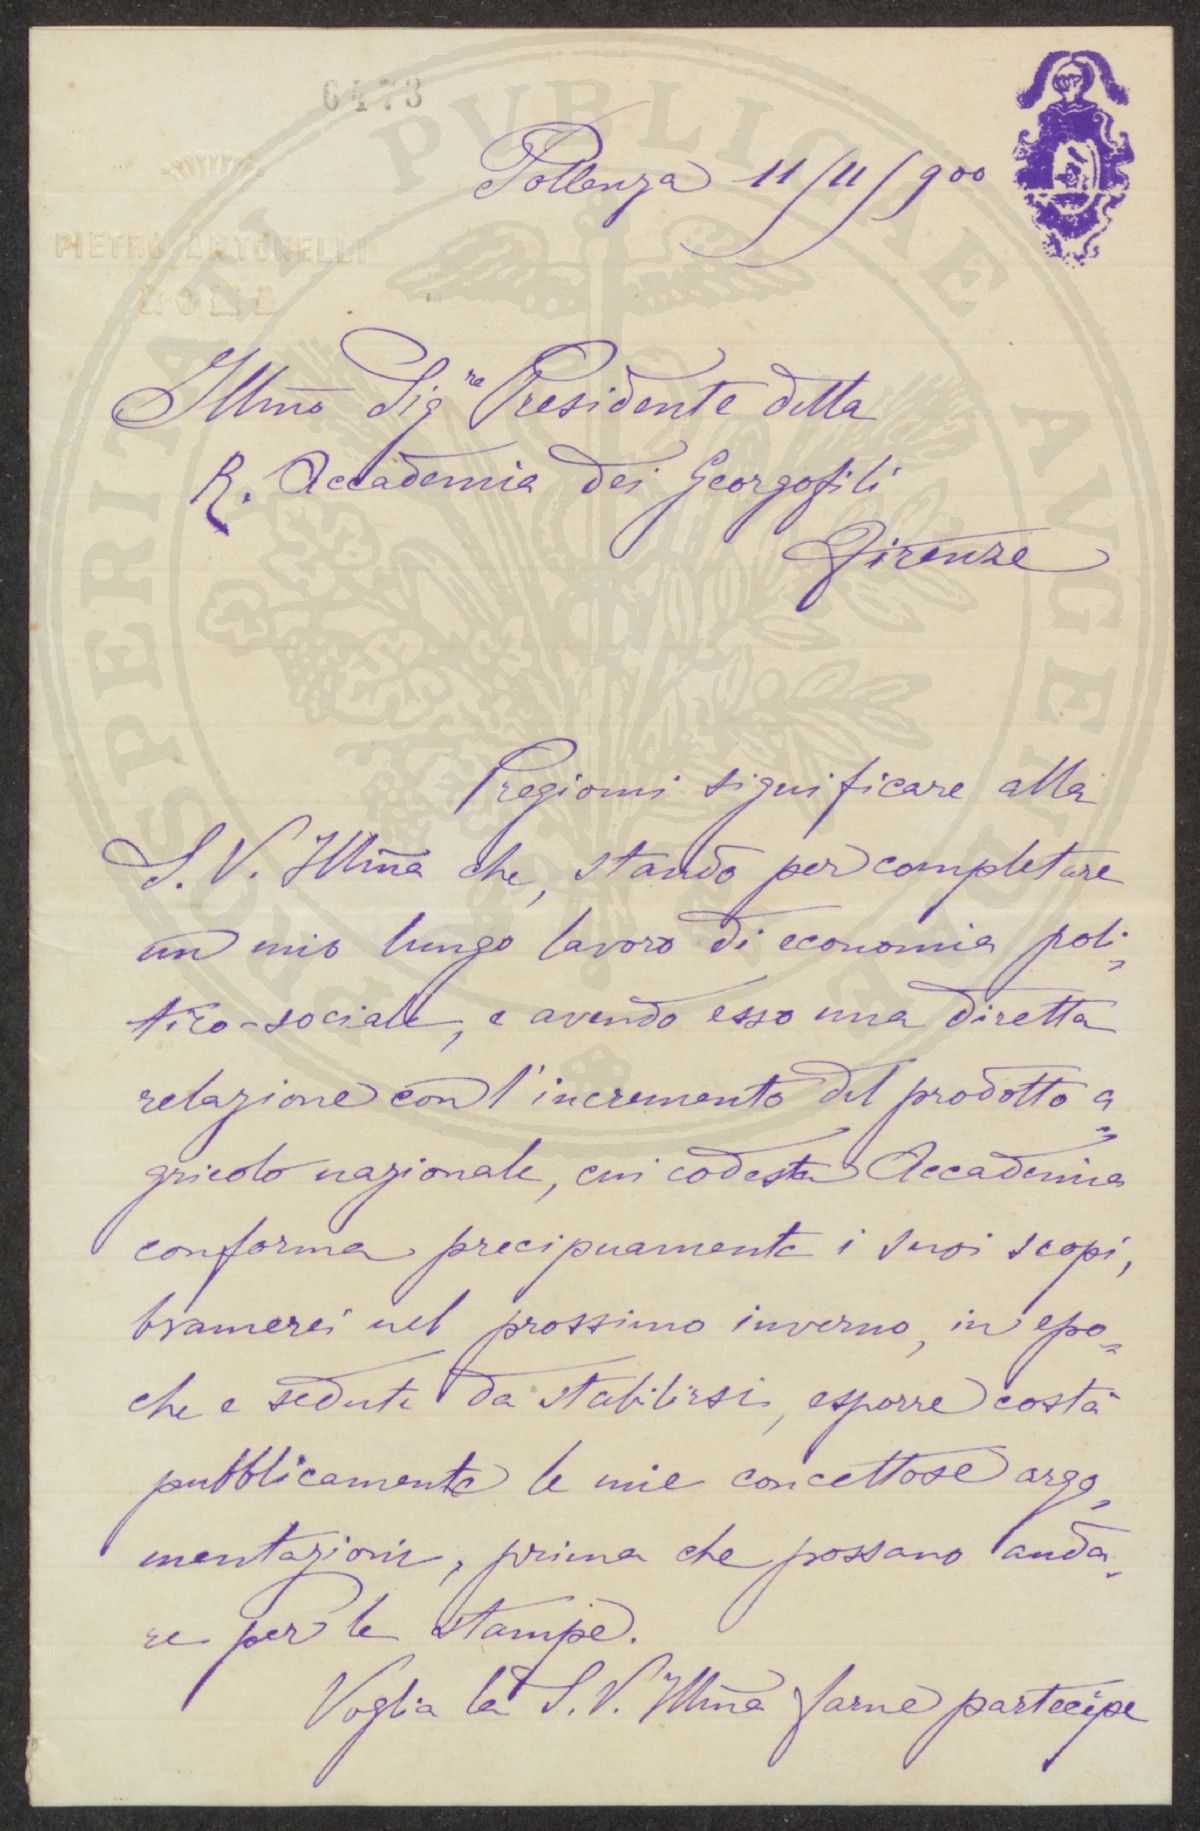 6473
PIETRO ANTONELLI
ROMA
PROSPERITATI PVBLICAE AVGENDAE
Pollenza 11/11/900
Illmo Sigre Presidente della
R. Accademia dei Georgofili
Firenze
Pregiomi significare alla
S. V. Illma che, stando per completare
un mio lungo lavoro di economia poli-
tico-sociale, e avendo esso una diretta
relazione con l'incremento del prodotto a-
gricolo nazionale, cui codesta Accademia
conforma precipuamente i suoi scopi,
bramerei nel prossimo inverno, in epo-
che e sedute da stabilirsi, esporre costà
pubblicamente le mie concettose argo-
mentazioni, prima che possano anda-
re per le stampe.
Voglia la S. V. Illma farne partecipe